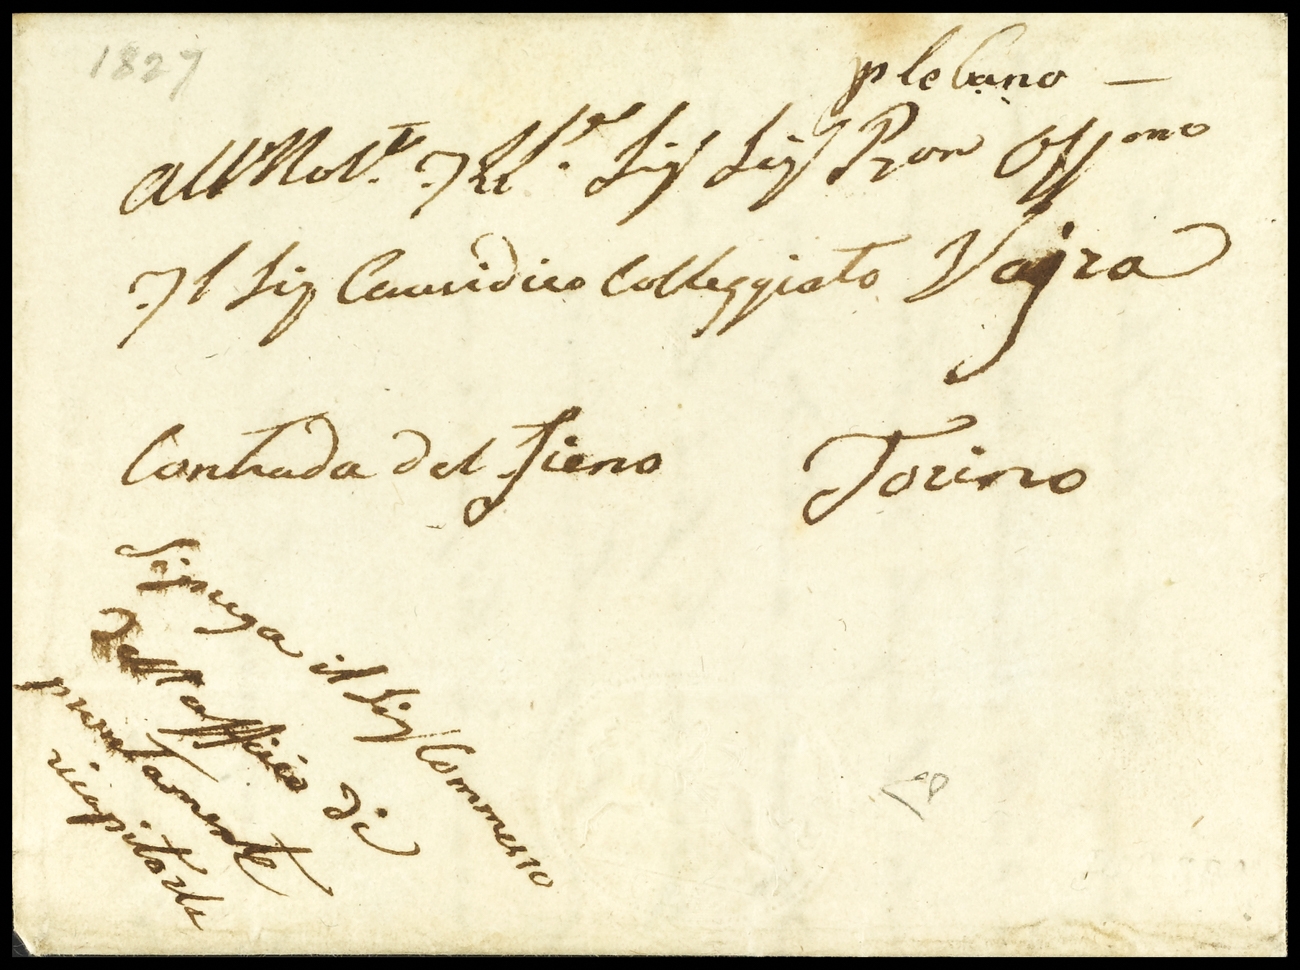 1827
plebano —
All Mol.to Ill.re Sig Sig Pron Oss.mo
Il Sig Causidico Colleggiato Vajra
Contrada del Fieno Torino
Si prega il Sig Commesso
dell officio di
prontamente
ricapitarla